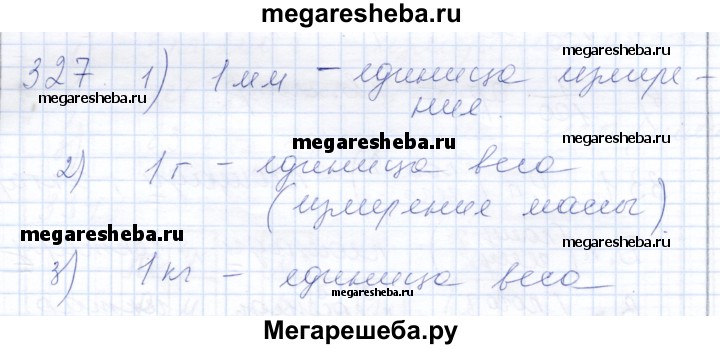 megaresheba.ru
327 1) 1 мм – единица измере-
megaresheba.ru
megaresheba.ru
ния.
megaresheba.ru
megaresheba.ru
2) 1 г – единица веса
(измерение массы).
megaresheba.ru
megaresheba.ru
3) 1 кг – единица веса
megaresheba.ru
Мегарешеба.ру